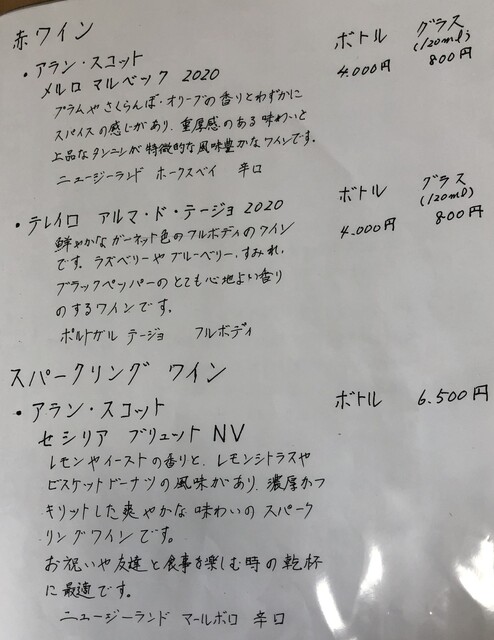 赤ワイン
・アラン・スコット ボトル グラス
(120ml)
メルロ マルベック 2020 4.000円 800円
プラムやさくらんぼ・オリーブの香りとわずかに
スパイスの感じがあり、重厚感のある味わいと
上品なタンニンが特徴的な風味豊かなワインです。
ニュージーランド ホークスベイ 辛口
ボトル グラス
(120ml)
・テレイロ アルマ・ド・テージョ 2020 4.000円 800円
鮮やかなガーネット色のフルボディのワイン
です。ラズベリーやブルーベリー、すみれ、
ブラックペッパーのとても心地よい香り
のするワインです。
ポルトガル テージョ フルボディ
スパークリング ワイン
・アラン・スコット ボトル 6.500円
セシリア ブリュット NV
レモンやイーストの香りと、レモンシトラスや
ビスケットドーナツの風味があり、濃厚かつ
キリットした爽やかな味わいのスパーク
リングワインです。
お祝いや友達と食事を楽しむ時の乾杯
に最適です。
ニュージーランド マールボロ 辛口